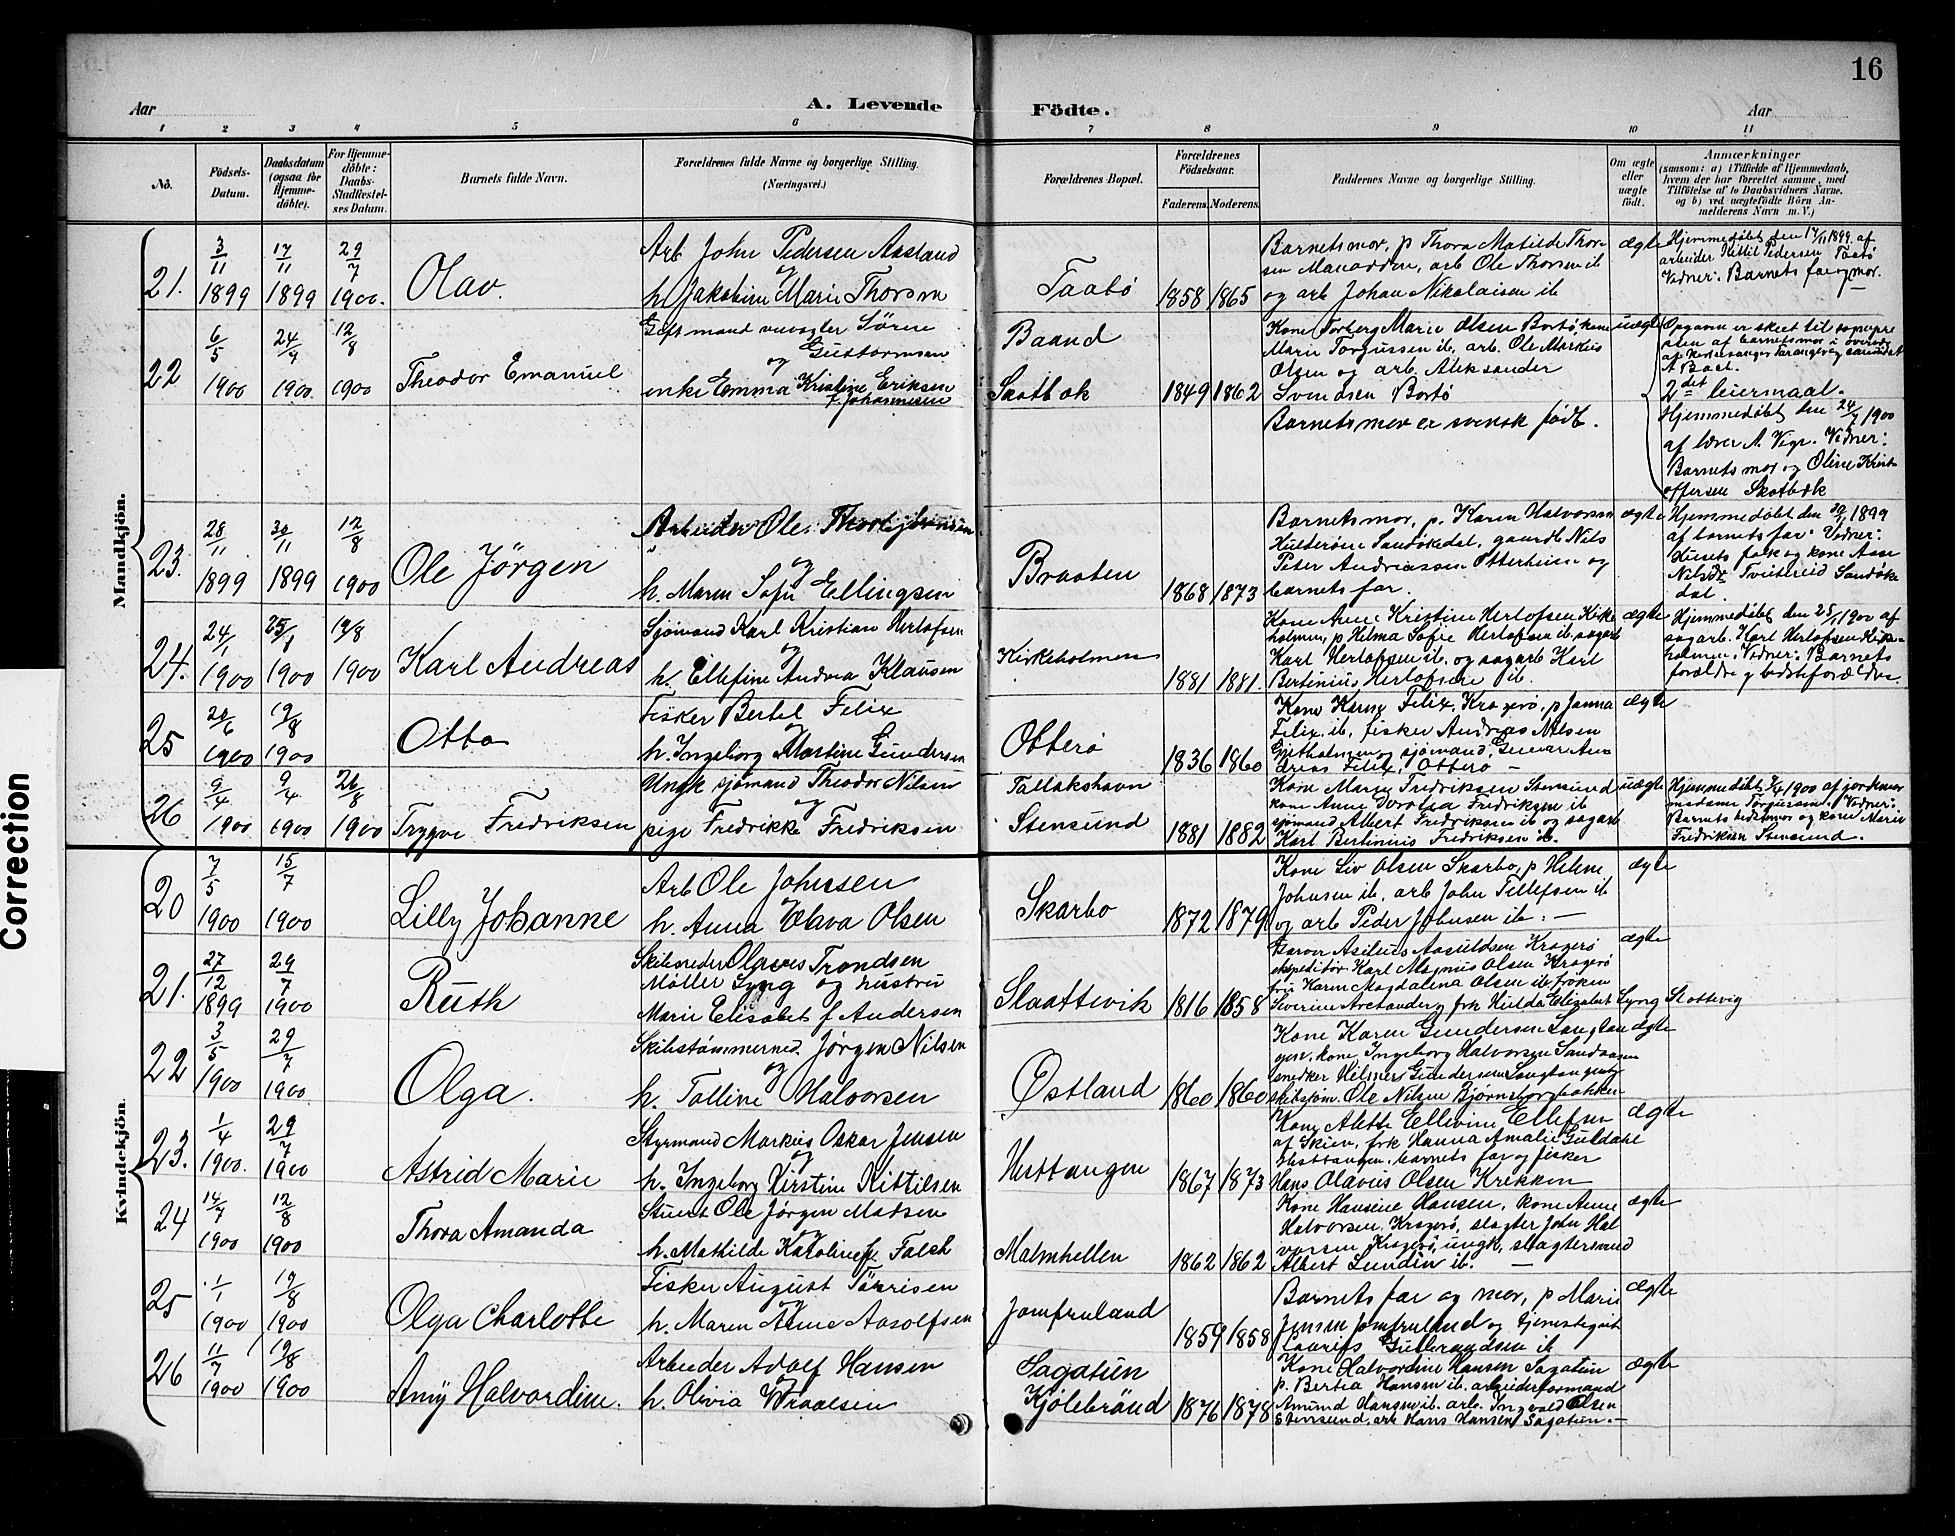 16
Aar
A. Levende
Födte.
Aar
1 2 3 4 5 6 7 8 9 10 11
No.
Födsels-Datum.
Daabsdatum (ogsaa for Hjemmedöbte).
For Hjemmedöbte: Daabs-Stadfæstelses Datum.
Barnets fulde Navn.
Forældrenes fulde Navne og borgerlige Stilling. (Næringsvei.)
Forældrenes Bopæl.
Forældrenes Födselsaar.
Faderens. Moderens.
Faddernes Navne og borgerlige Stilling.
Om ægte eller uægte födt.
Anmærkninger
(saasom: a) i Tilfælde af Hjemmedaab,
hvem der har forrettet samme, med
Tilföielse af to Daabsvidners Navne.
og b) ved uægtefödte Börn Anmelderens Navn m. V.)
Mandkjön.
21. 3/11 1899 17/11 1899 29/7 1900. Olav.
Arb John Pedersen Aasland
og
h. Jakobine Marie Thorsen
Taatø 1858 1865
Barnets mor, p Thora Matilde Thor-
sen, arb Ole Thorsen ib
og arb Johan Nikolaisen ib
ægte
Hjemmedøbt den 17/11 1899 af
arbeider Kittil Pedersen Taatø
Vidner: Barnets far og mor.
22 6/5 1900 24/7 1900. 12/8 1900 Theodor Emanuel
Gift mand Søren
Guttormsen
og
enke Emma Kristine Eriksen
f. Johannesen
Baand
Skotbæk 1849 1862
Kone Torberg Marie Olsen Bortø, kone
Marie Torgussen ib, arb. Ole Markus
Olsen og arb. Aleksander
Svendsen Bortø
Barnets mor er svensk født.
uægte
Opgaven er skeet til sognepre
sten af barnets mor
2det leiermaal.
Hjemmedøbt den 24/7 1900
af lærer A. Vidner:
Barnets mor og Oline Krist-
offersen Skotbæk
23. 28/11 1899 30/11 1899 12/8 1900 Ole Jörgen
Arbeider Ole Thorbjørnsen
og
h. Maren Sofie Ellingsen
Braaten 1868 1873
Barnets mor, p. Karen Halvorsen
Sandøkedal, gaardb Nils
Peter Andreassen Otterheim og
barnets far.
ægte
Hjemmedøbt den 30/11 1899
af barnets far. Vidner:
Husets folk og kone Aase
Nilsdr Tveitereid Sandøke
dal.
24. 24/1 1900 25/1 1900 12/8 1900 Karl Andreas
Sjømand Karl Kristian Herlofsen
og
h. Ellefine Andrea Klausen
Kirkeholmen 1881 1881.
Kone Anne Kristine Herlofsen Kirke
holmen, p Helma Sofie Herlofsen ib. sagarb
Karl Herlofsen ib. og sagarb Karl
Bertinius Herlofsen ib.
ægte
Hjemmedøbt den 25/1 1900 af
sagarb. Karl Herlofsen Kirke-
holmen. Vidner: Barnets
forældre og bedsteforældre.
25 20/6 1900 12/8 1900 Otto
Fisker Bertel Felix
og
h. Ingeborg Martine Gundersen
Otterø 1836 1860
Kone Karine Felix, Kragerø, p Janna
Felix ib, fisker Andreas Nilsen
Gjetholmen og sjømand Gunvar An
dreas Felix, Otterø –
ægte
26 9/4 1900 9/4 1900 26/8 1900 Trygve Fredriksen
Ungk sjømand Theodor Nilsen
og
pige Fredrikke Fredriksen
Tallakshavn
Stensund 1881 1882
Kone Maren Fredriksen Stensund
kone Anne Dorothea Fredriksen ib
sjømand Albert Fredriksen ib og sagarb
Karl Bertinius Fredriksen ib.
uægte
Hjemmedøbt 9/4 1900 af jordemor
madame Torgussen. Vidner:
Barnets bedstemor og kone Marie
Fredriksen Stensund.
Kvindekjön.
20 7/5 1900 15/7 1900 Lilly Johanne
Arb Ole Johnsen
h. Anna Elava Olsen
Skarbo 1872 1879
Kone Liv Olsen Skarbo, p Helene
Johnsen ib, arb John Tellefsen ib
og arb Peder Johnsen ib. –
ægte
21. 27/12 1899 29/7 1900 Ruth
Skibsreder Olaves Trondsen
Møller Lyng og hustru
Marie Elisabet f Andersen
Slaattevik 1816 1858
Garver Kragerø
ekspeditör Karl Magnus Olsen Kragerø
fru Karen Magdalena Olsen ib frøken
Severine og frk Hulda Elisabet Lyng Slottevig
ægte
22 3/5 1900 29/7 1900 Olga.
Skibstømmermd. Jørgen Nilsen
og
h.Талline Halvorsen
Østland 1860 1860
Kone Karen Gundersen Langtan
gen, kone Ingeborg Halvorsen Sandaasen
snedker Hilmer Gundersen Langtangen og
skibstøm. Ole Nilsen Bjørnsborgbakken
ægte
23. 1/4 1900. 29/7 1900 Astrid Marie
Styrmand Markus Oskar Jensen
og
h. Ingeborg Kirstine Kittilsen
Hesttangen 1867 1873
Kone Alette Elevine Ellefsen
af Skien, frk Hanna Amalie Guldahl
Hesttangen, barnets far og fisker
Hans Olavus Olsen Krikken
ægte
24 14/7 1900 12/8 1900 Thora Amanda
Stuert Ole Jørgen Madsen
og
h. Mathilde Karoline f. Falch
Malmhellen 1862 1862
Kone Hansine Hansen, kone Anne
Halvorsen Kragerø, slagter John Hal
vorsen Kragerø, ungk. slagtersvend
Albert Lundin ib. –
ægte
25 1/1 1900 12/8 1900 Olga Charlotte
Fisker August Tørrisen
og
h. Maren Anne Aasolfsen
Jomfruland 1859 1858
Barnets far og mor, p Marie
Jensen Jomfruland og tjenestegut
Laurits Gulbrandsen ib
ægte
26 11/7 1900 12/8 1900 Amÿ Halvordine.
Arbeider Adolf Hansen
og
h. Olivia Wraalsen
Sagatun
Kjølebrønd 1876 1878
Kone Halvordine Hansen Sagatun
p. Bertea Hansen ib. arbeiderformand
Amund Hansen ib. arb. Ingvald Olsen
Stensund, arb Hans Hansen Sagatun. –
ægte
Correction